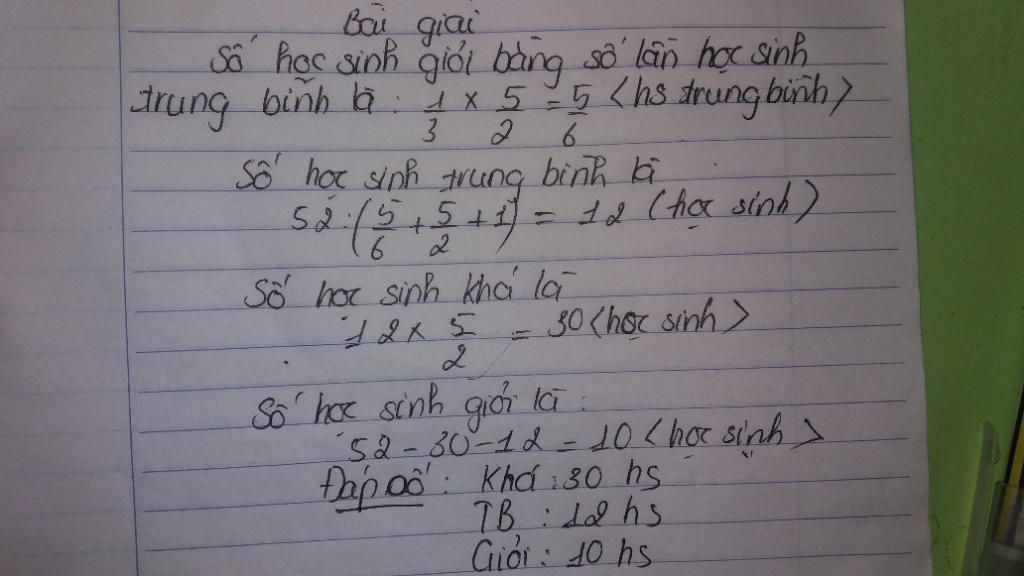 Bài giải
Số học sinh giỏi bằng số lần học sinh
trung bình là : 1/3 × 5/2 = 5/6 <hs trung bình>
Số học sinh trung bình là
52 : (5/6 + 5/2 + 1) = 12 (học sinh)
Số học sinh khá là
12 × 5/2 = 30 <học sinh>
Số học sinh giỏi là :
52 - 30 - 12 = 10 <học sinh>
Đáp số : Khá : 30 hs
TB : 12 hs
Giỏi : 10 hs